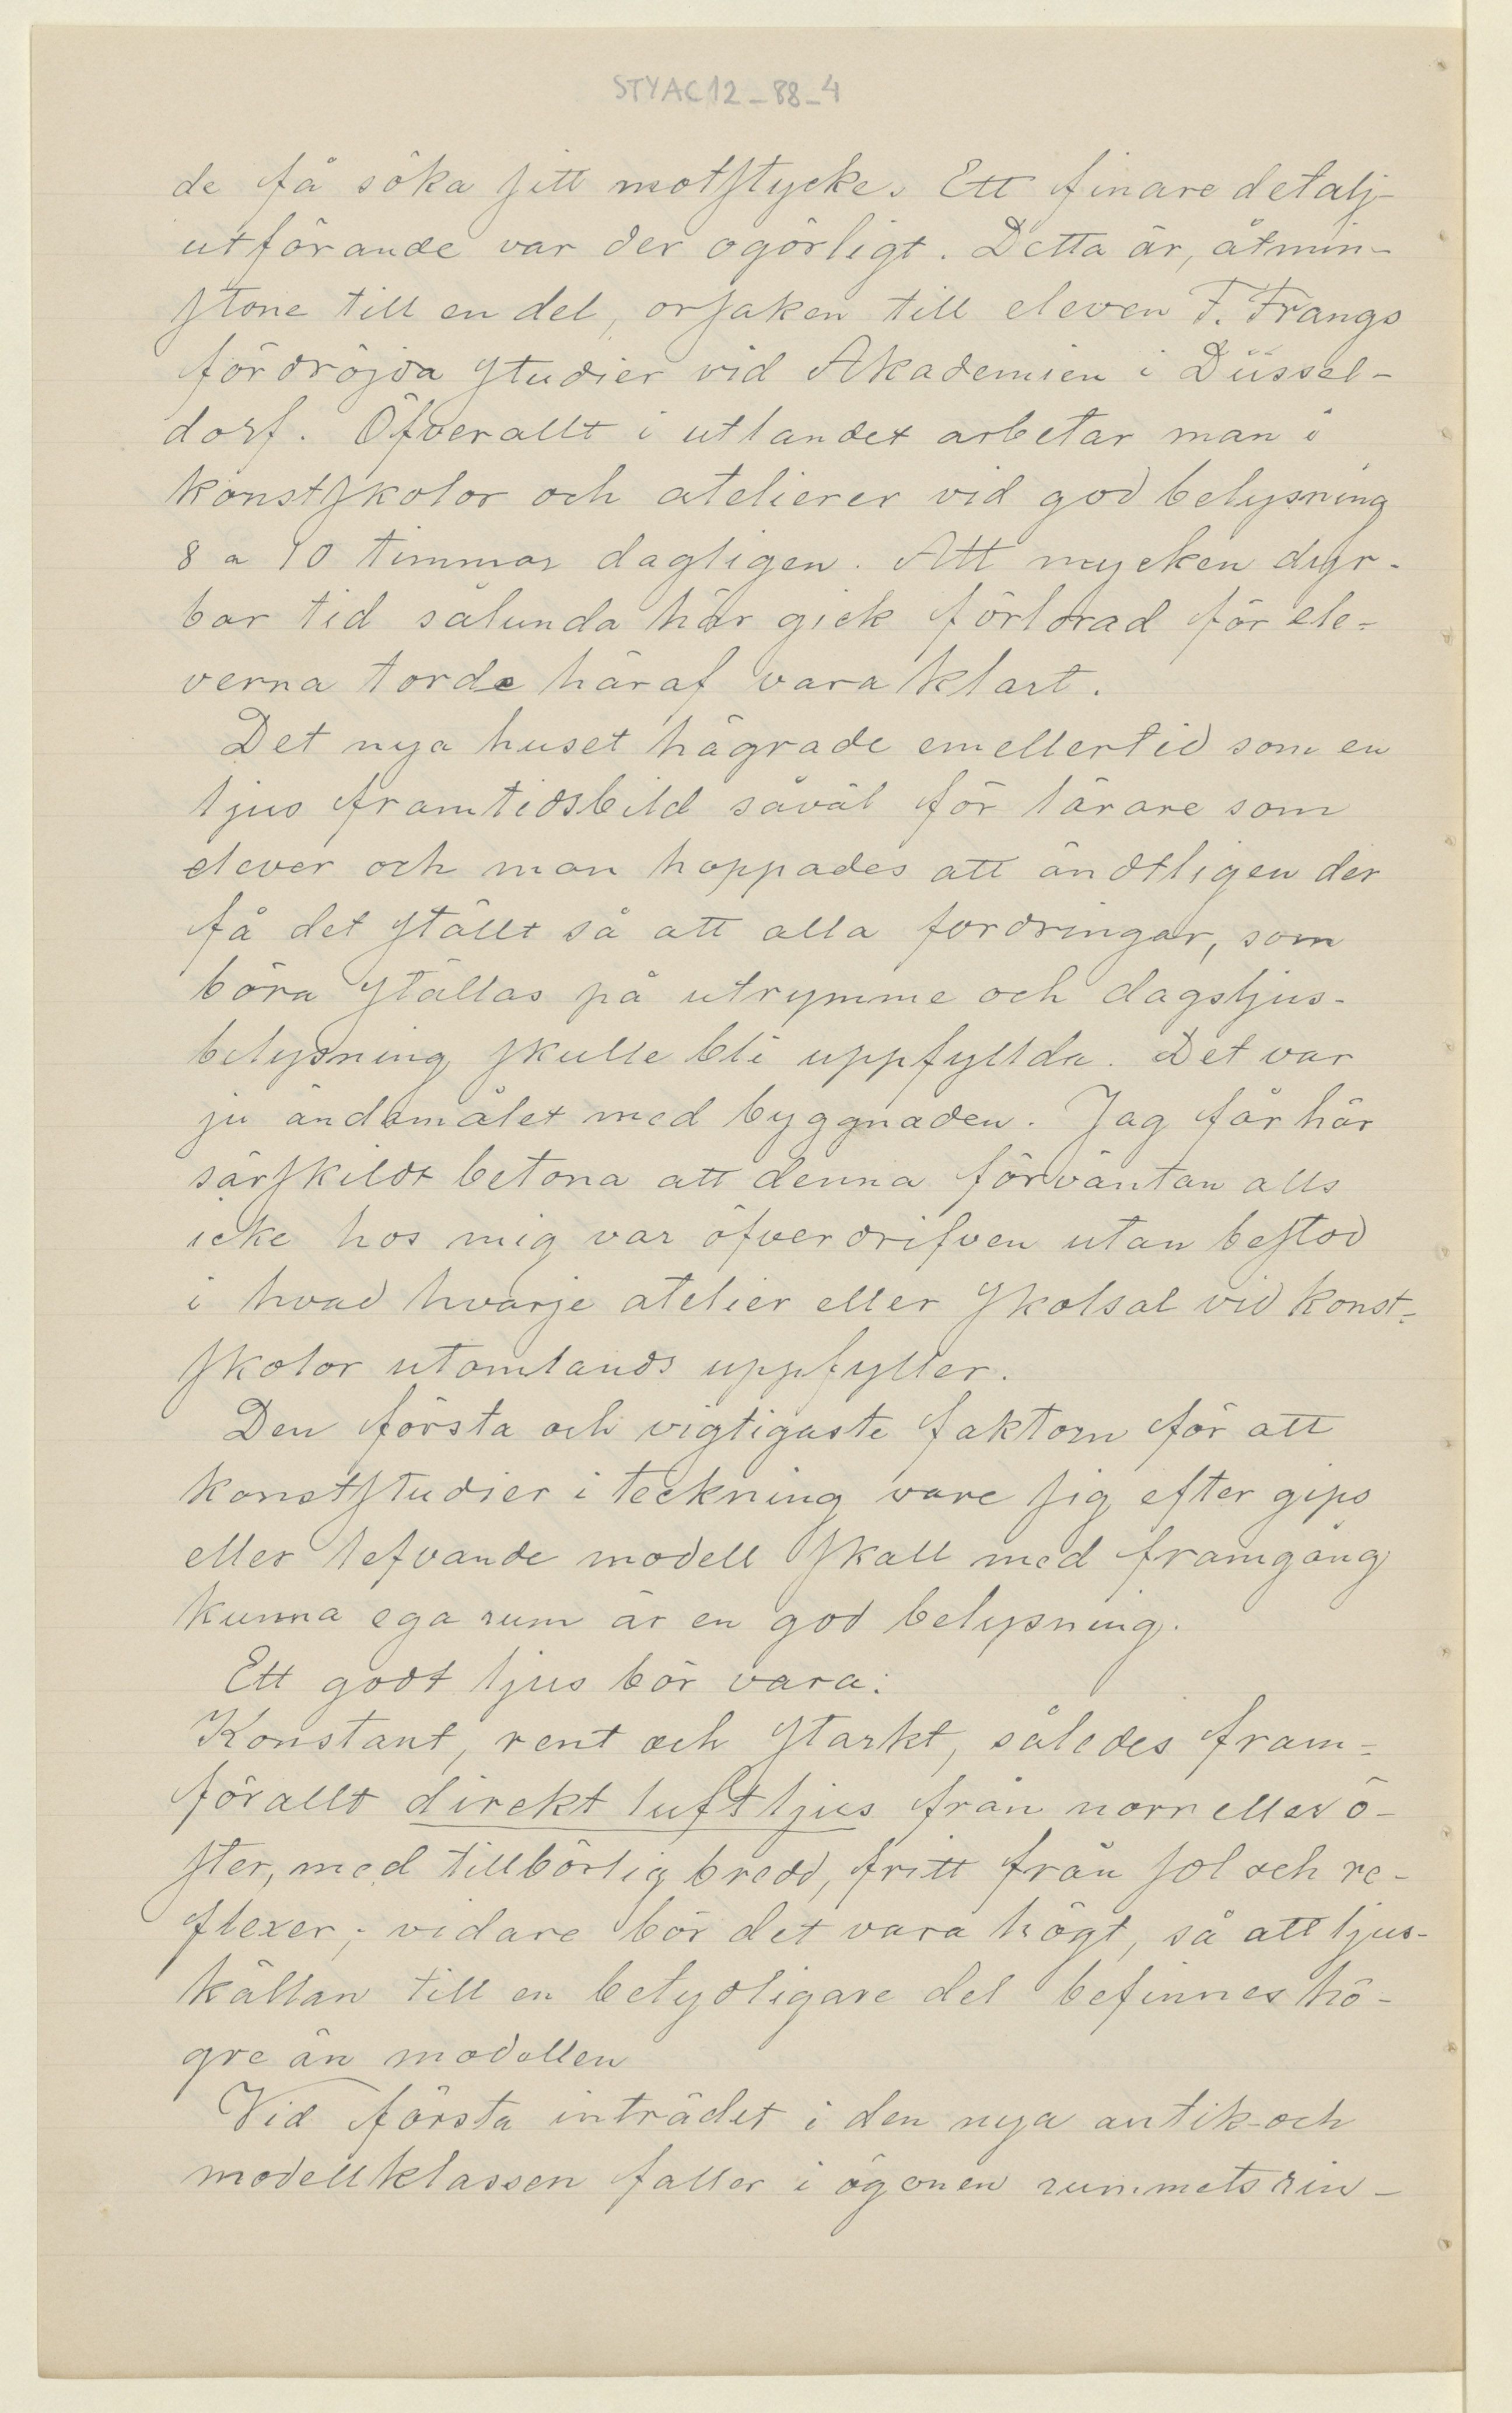 STYAC12_88_4
de få söka sitt motstycke. Ett finare detalj-
utförande var der ogörligt. Detta är, åtmin-
stone till en del, orsaken till eleven F. Frangs
fördröjda studier vid Akademien i Düssel-
dorf. Öfverallt i utlandet arbetar man i
konstskolor och atelierer vid god belysning
8 a 10 timmar dagligen. Att mycken dyr-
bar tid sålunda här gick förlorad för ele-
verna torde häraf vara klart.
Det nya huset hägrade emellertid som en
ljus framtidsbild såväl för lärare som
elever och man hoppades att ändtligen der
få det ställt så att alla fordringar, som
böra ställas på utrymme och dagsljus-
belysning skulle bli uppfyllda. Det var
ju ändamålet med byggnaden. Jag får här
särskildt betona att denna förväntan alls
icke hos mig var öfverdrifven utan bestod
i hvad hvarje atelier eller skolsal vid konst-
skolor utomlands uppfyller.
Den första och vigtigaste faktorn för att
konststudier i teckning vare sig efter gips
eller lefvande modell skall med framgång
kunna ega rum är en god belysning.
Ett godt ljus bör vara:
Konstant, rent och starkt, således fram-
förallt direkt luftljus från norr eller ö-
ster, med tillbörlig bredd, fritt från sol och re-
flexer; vidare bör det vara högt, så att ljus-
källan till en betydligare del befinnes hö-
gre än modellen
Vid första inträdet i den nya antik- och
modellklassen faller i ögonen rummets rin-